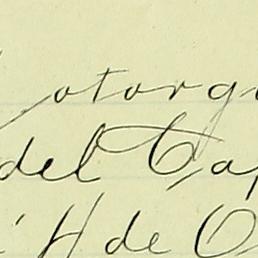 otorg
del Ca
H de O